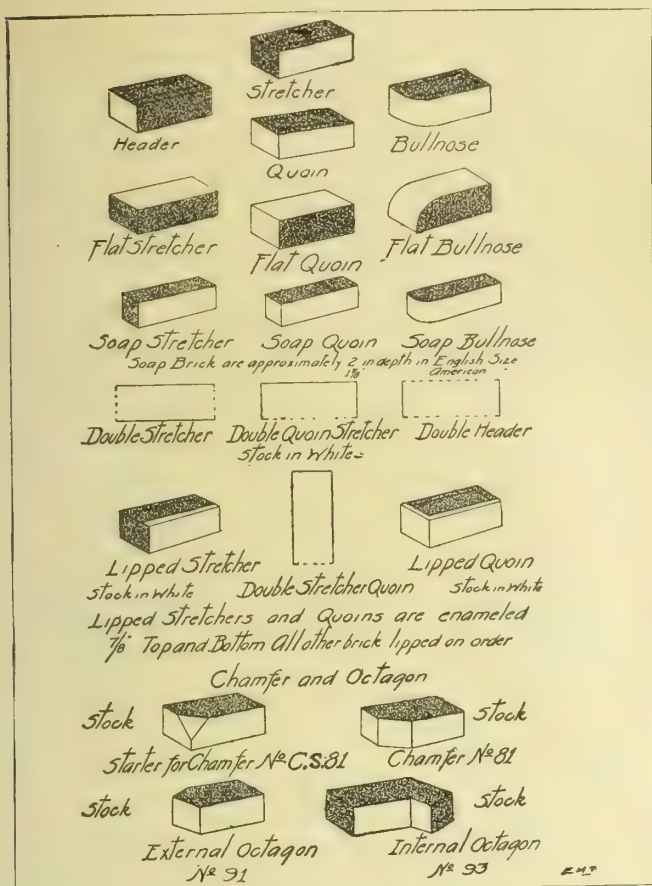 Stretcher
Header
Quoin
Bullnose
Flat Stretcher
Flat Quoin
Flat Bullnose
Soap Stretcher
Soap Quoin
Soap Bullnose
Soap Brick are approximately 2 in depth in English Size
1⅞ American
Double Stretcher
Double Quoin Stretcher
Double Header
Stock in White=
Lipped Stretcher
Stock in White
Double Stretcher Quoin
Lipped Quoin
Stock in White
Lipped Stretchers and Quoins are enameled
⅞" Top and Bottom All other brick lipped on order
Chamfer and Octagon
Stock
Stock
Starter for Chamfer Nº C.S.81
Chamfer Nº 81
Stock
Stock
External Octagon
Nº 91
Internal Octagon
Nº 93